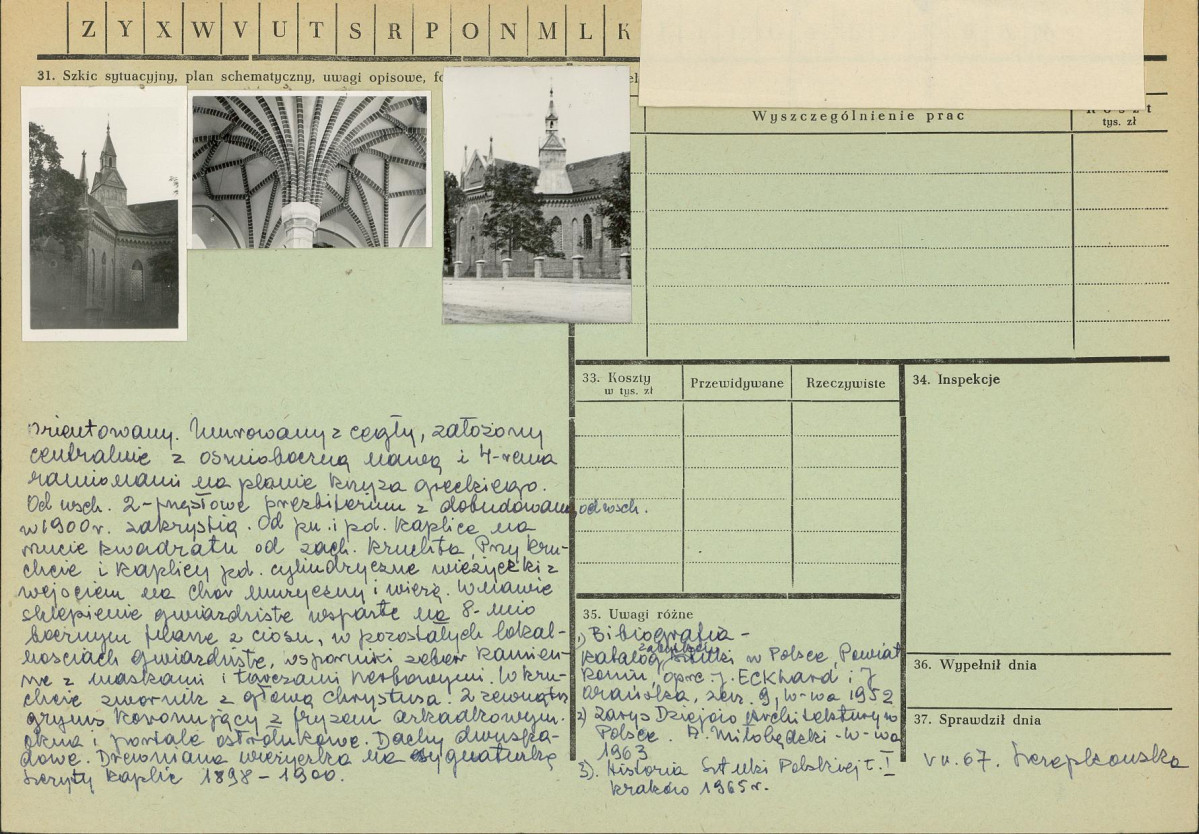 Z Y X W V U T S R P O N M L K
31. Szkic sytuacyjny, plan schematyczny, uwagi opisowe, fo
Wyszczególnienie prac
Koszt
tys. zł
33. Koszty
w tys. zł
Przewidywane
Rzeczywiste
34. Inspekcje
orientowany. Murowany z cegły, założony
centralnie z ośmioboczną nawą i 4-rema
ramionami na planie krzyża greckiego.
Od wsch. 2-przęsłowe prezbiterium z dobudowaną od wsch.
w 1900 r. zakrystią. Od pn. i pd. kaplice na
rzucie kwadratu od zach. kruchta. Przy kru-
chcie i kaplicy pd. cylindryczne wieżyczki z
wejściem na chór muzyczny i wieżę. W nawie
sklepienie gwiaździste wsparte na 8-mio
bocznym filarze z ciosu, w pozostałych lokal-
nościach gwiaździste, wsporniki żeber kamien-
ne z maskami i tarczami herbowymi. W kru-
chcie zwornik z głową Chrystusa. Z zewnątrz
gzyms koronujący z fryzem arkadkowym.
okna i portale ostrołukowe. Dachy dwuspa-
dowe. Drewniana wieżyczka na sygnaturkę
szczyty kaplic 1898-1900.
35. Uwagi różne
1) Bibiografia -
Katalog zabytków sztuki w Polsce, Powiat
Konin, oprc. J. Eckhard i J
Arańska, zesz. 9, W-wa 1952
2) Zarys Dziejów Architektury w
Polsce. A. Miłobędzki - W-wa
1963
3). Historia Sztuki Polskiej t. I
Kraków 1965 r.
36. Wypełnił dnia
37. Sprawdził dnia
VII. 67.